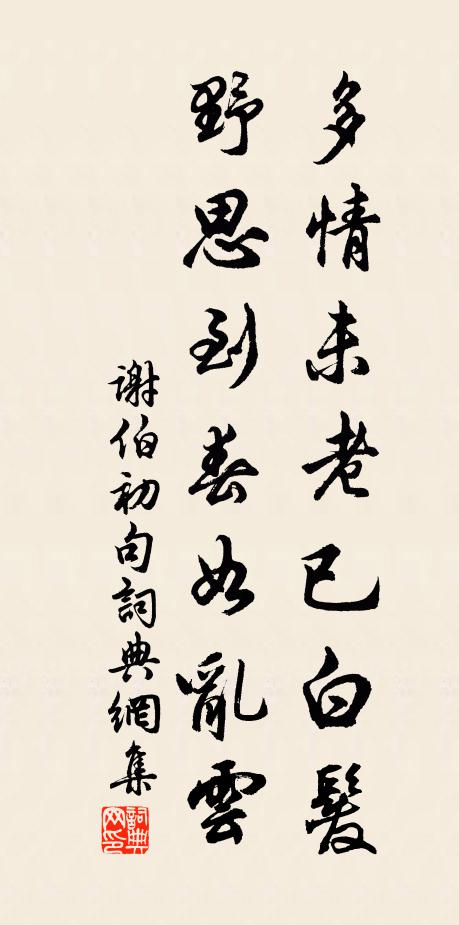 多情未老已白髮
野思到春如亂雲
謝伯初句詞典網集
詞典網印